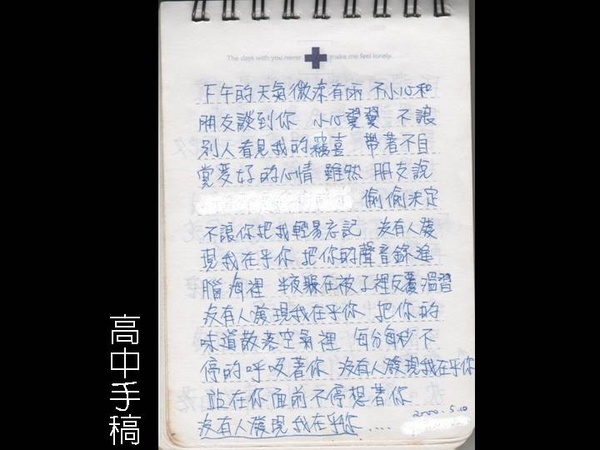 The days with you never make me feel lonely.
下午的天氣微涼有雨 不小心和
朋友談到你 小心翼翼 不讓
別人看見我的竊喜 帶著不自
覺要好的心情 雖然 朋友說
偷偷決定
不讓你把我輕易忘記 沒有人發
現我在乎你 把你的聲音錄進
腦海裡 半夜躲在被子裡反覆溫習
沒有人發現我在乎你 把你的
味道散落空氣裡 每分每秒不
停的呼吸著你 沒有人發現我在乎你
站在你面前不停想著你
沒有人發現我在乎你....
2000.5.10
高中手稿